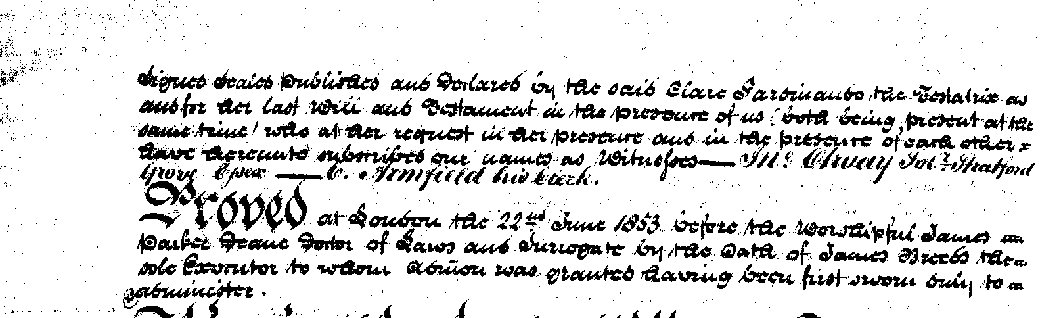 Signed Sealed Published and Declared by the said Clare Fardinando the Testatrix as
and for her last Will and Testament in the presence of us (both being present at the
same time) who at her request in her presence and in the presence of each other =
have hereunto subscribed our names as Witnesses — Jno. Elway Solr. Stratford
Grove Essex — C. Armfield his clerk.
Proved at London the 22nd June 1853 before the Worshipful James
Parker Deane Doctor of Laws and Surrogate by the Oath of James Breeds the
sole Executor to whom Admon was granted having been first sworn duly to
administer.